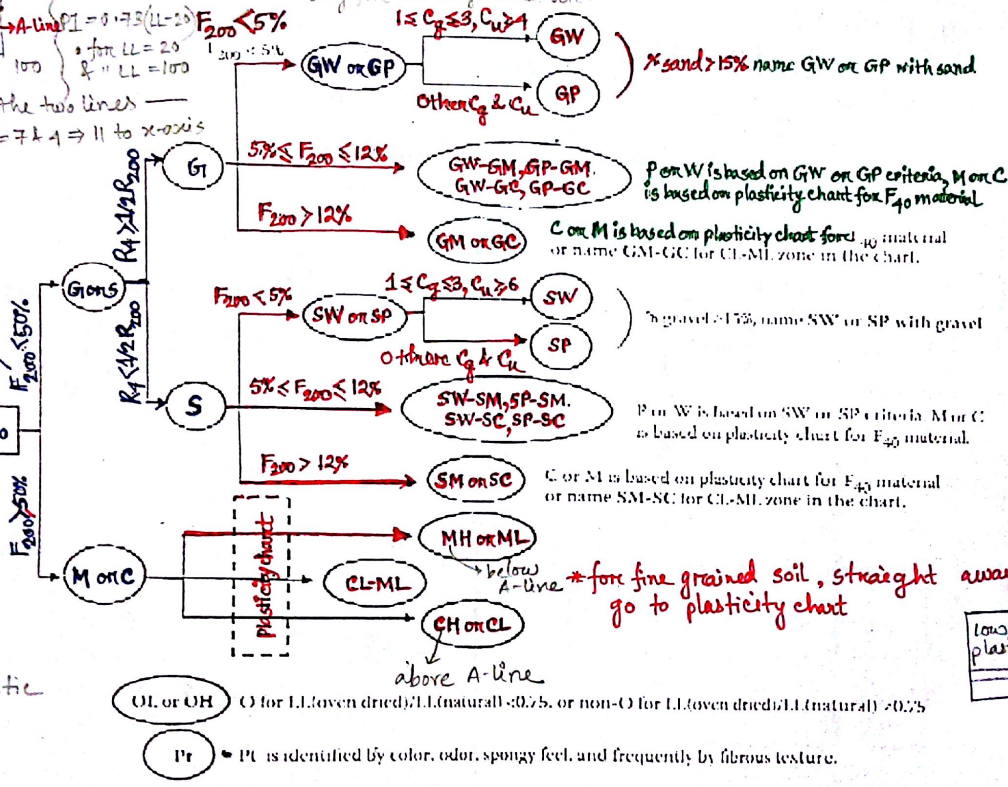 →A-line PI = 0.73(LL-20)
• for LL = 20
100 & " LL = 100
the two lines —
= 7 & 4 ⇒ 11 to x-axis
F200 < 5%
GW or GP
1 ≤ Cg ≤ 3, Cu ≥ 4
GW
Other Cg & Cu
GP
% sand > 15% name GW or GP with sand
R4 > 1/2 R200
G
5% ≤ F200 ≤ 12%
GW-GM, GP-GM.
GW-GC, GP-GC
P or W is based on GW or GP criteria, M or C
is based on plasticity chart for F40 material
F200 > 12%
GM or GC
C or M is based on plasticity chart for F40 material
or name GM-GC for CL-ML zone in the chart.
F200 < 50%
G or S
R4 < 1/2 R200
F200 < 5%
SW or SP
1 ≤ Cg ≤ 3, Cu ≥ 6
SW
Other Cg & Cu
SP
% gravel > 15%, name SW or SP with gravel
S
5% ≤ F200 ≤ 12%
SW-SM, SP-SM.
SW-SC, SP-SC
P or W is based on SW or SP criteria. M or C
is based on plasticity chart for F40 material.
F200 > 12%
SM or SC
C or M is based on plasticity chart for F40 material
or name SM-SC for CL-ML zone in the chart.
F200 > 50%
M or C
Plasticity chart
MH or ML
below
A-line
CL-ML
CH or CL
above A-line
* for fine grained soil, straight away
go to plasticity chart
low
plas
tic
OL or OH
O for LL(oven dried)/LL(natural) <0.75, or non-O for LL(oven dried)/LL(natural) >0.75
Pt
Pt is identified by color, odor, spongy feel, and frequently by fibrous texture.